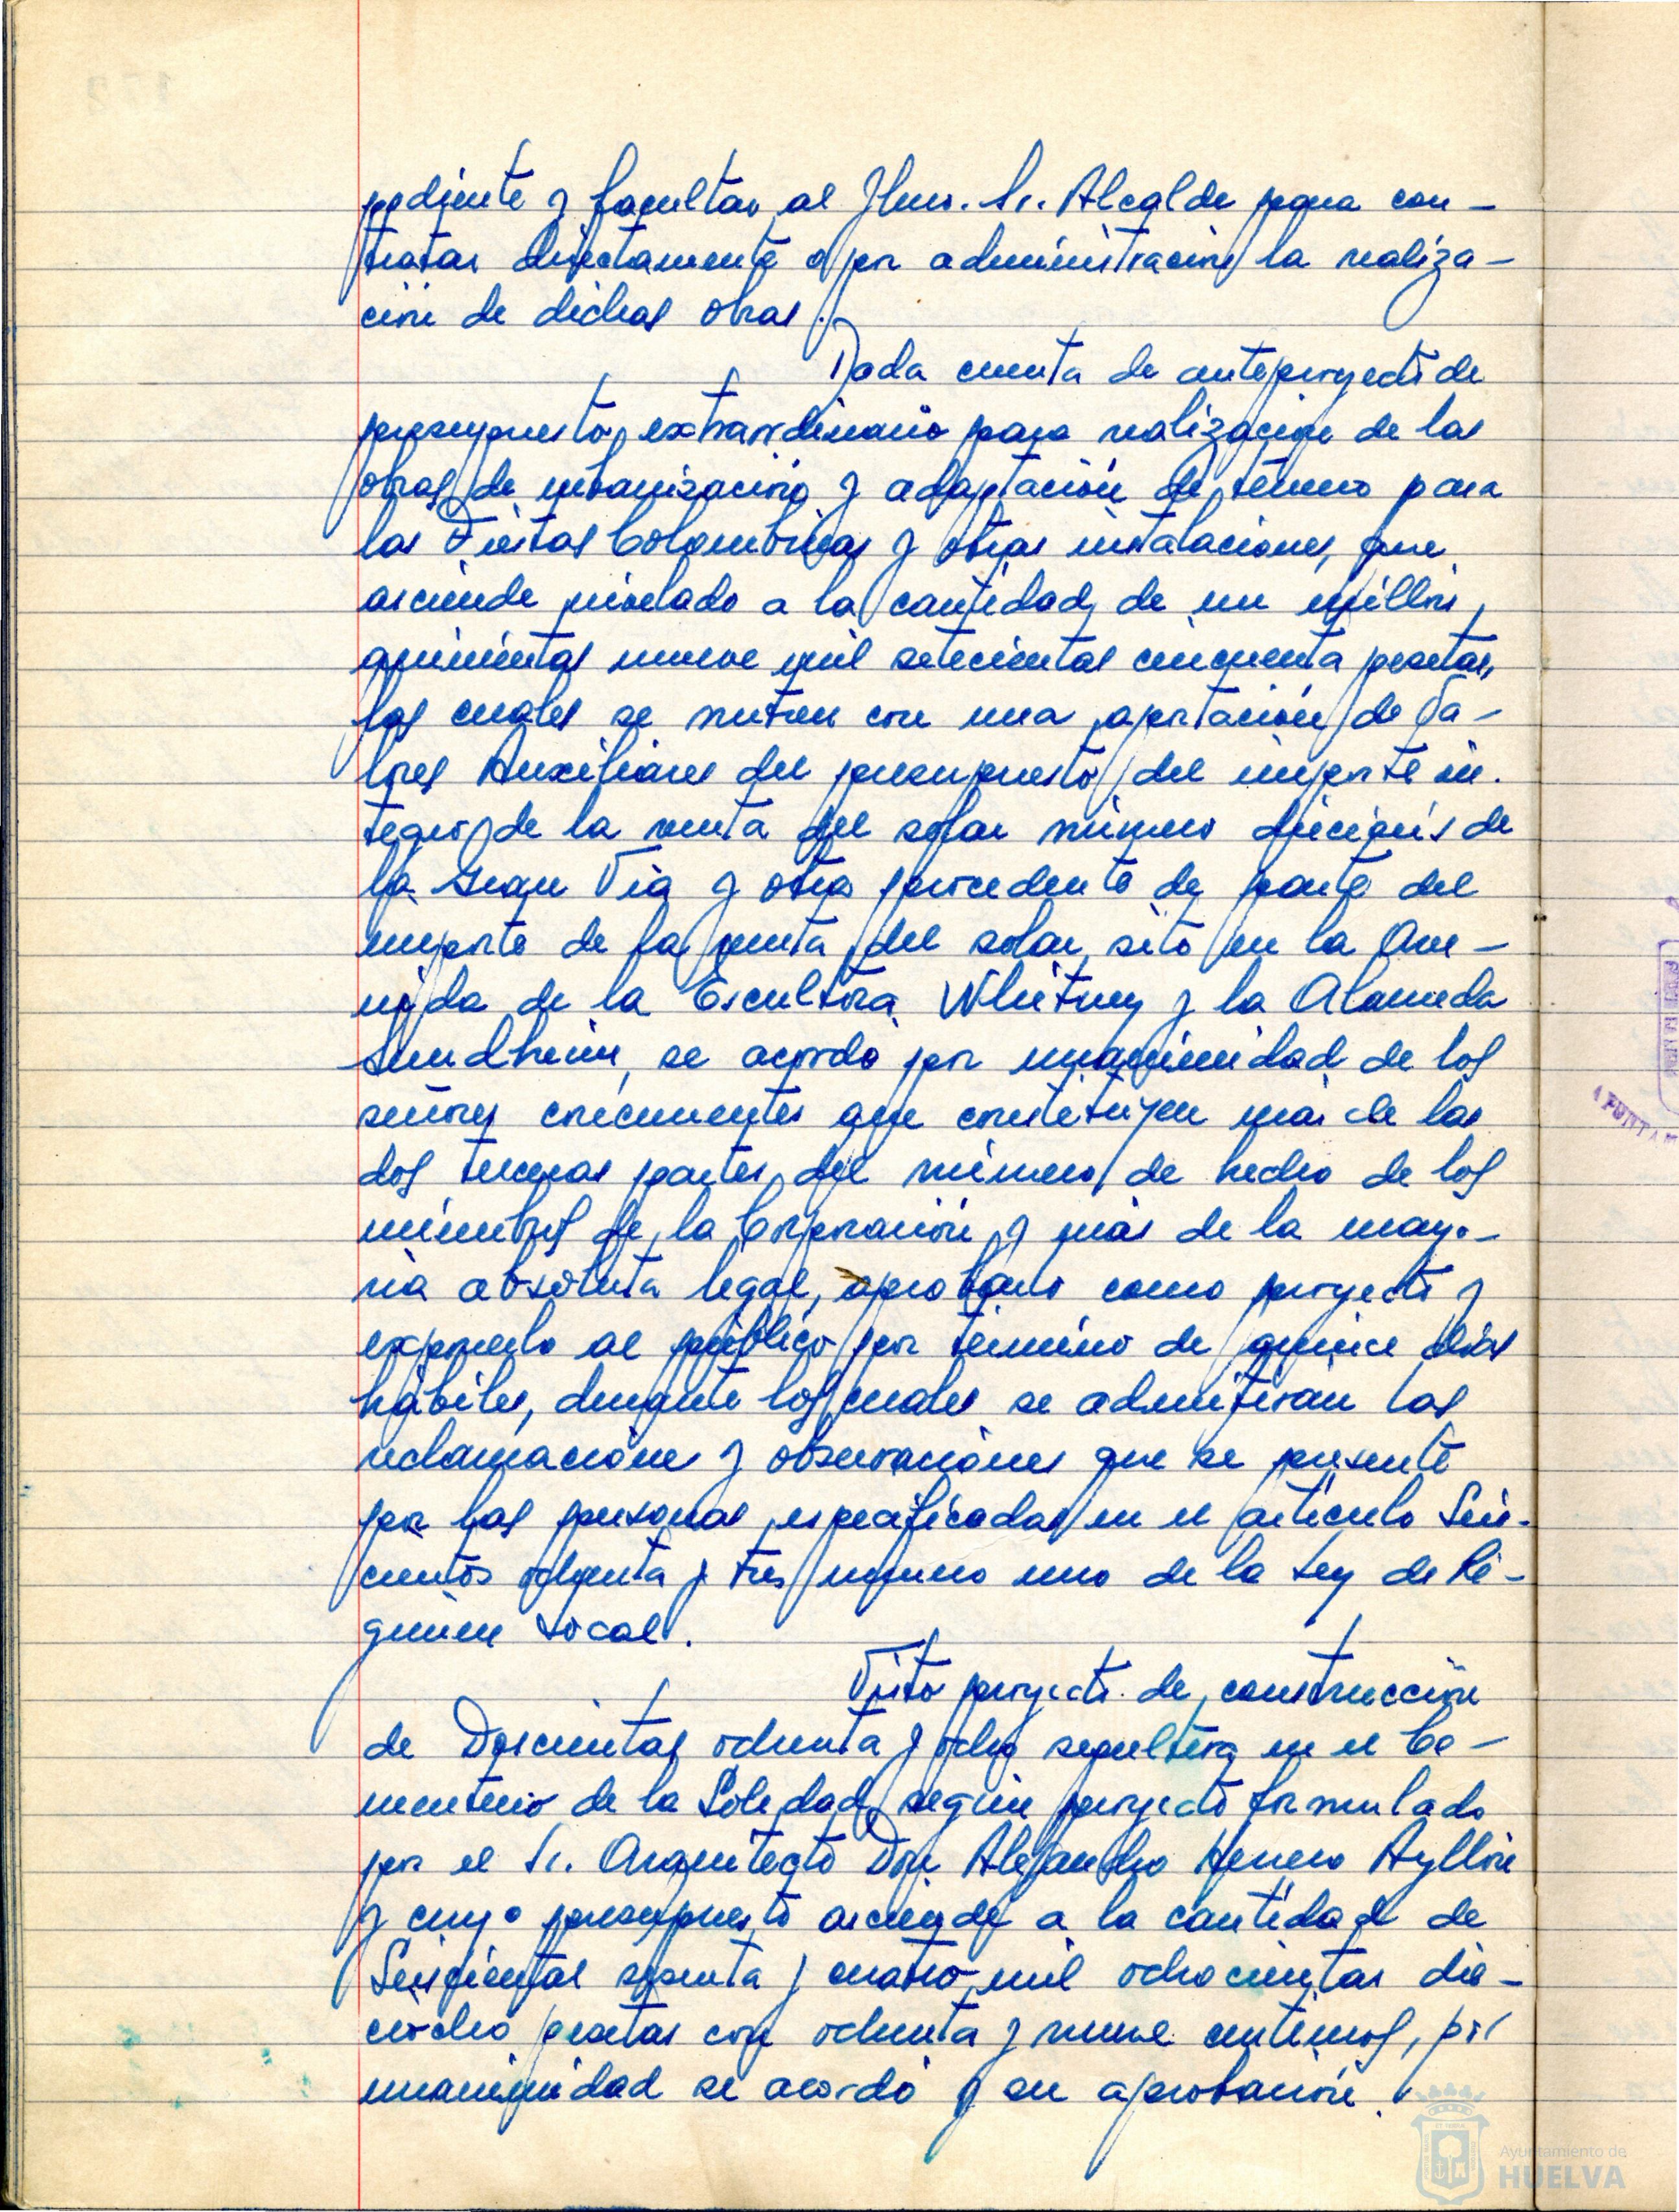 pediente y facultar al Ilmo. Sr. Alcalde para con-
tratar directamente o por administración la realiza-
ción de dichas obras.
Dada cuenta de anteproyecto de
presupuesto extraordinario para realización de las
obras de urbanización y adaptación de terreno para
las Fiestas Colombinas y otras instalaciones, que
asciende nivelado a la cantidad de un millón,
quinientas nueve mil setecientas cincuenta pesetas,
las cuales se nutren con una aportación de Va-
lores Auxiliares del presupuesto del importe ín-
tegro de la venta del solar número dieciséis de
la Gran Vía y otra procedente de parte del
importe de la venta del solar sito en la Ave-
nida de la Escultora Whitney y la Alameda
Sundheim, se acordó por unanimidad de los
señores concurrentes que constituyen más de las
dos terceras partes del número de hecho de los
miembros de la Corporación y más de la mayo-
ría absoluta legal, aprobarlo como proyecto y
exponerlo al público por término de quince días
hábiles, durante los cuales se admitirán las
reclamaciones y observaciones que se presente
por las personas especificadas en el artículo Seis-
cientos ochenta y tres número uno de la Ley de Ré-
gimen Local.
Visto proyecto de construcción
de Doscientas ochenta y ocho sepultura en el Ce-
menterio de la Soledad, según proyecto formulado
por el Sr. Arquitecto Don Alejandro Herrero Ayllón
y cuyo presupuesto asciende a la cantidad de
Seiscientas sesenta y cuatro mil ochocientas die-
ciocho pesetas con ochenta y nueve céntimos, por
unanimidad se acordó su aprobación.
Ayuntamiento de
HUELVA